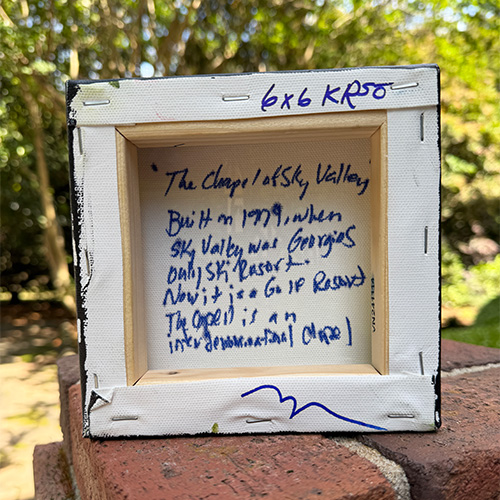 6x6 KR50
"The Chapel of Sky Valley"
Built in 1979, when
Sky Valley was Georgias
only Ski Resort.
Now it is a Golf Resort
The Chapel is an
interdenominational Chapel